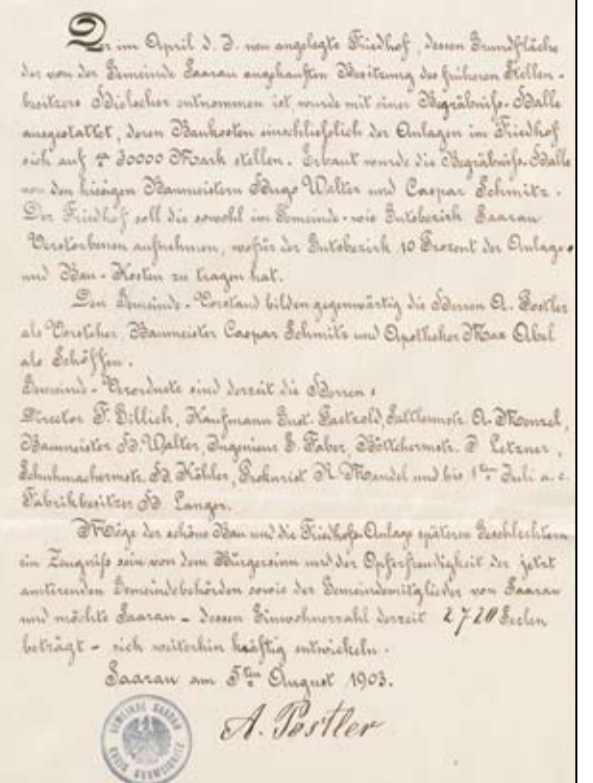 Der im April d. J. neu angelegte Friedhof, dessen Grundfläche
der von der Gemeinde Saarau angekauften Besitzung des früheren Stellen-
besitzers Bielscher entnommen ist, wurde mit einer Begräbniß-Halle
ausgestattet, deren Baukosten einschließlich der Anlagen im Friedhof
sich auf 30000 Mark stellen. Erbaut wurde die Begräbniß-Halle
von den hiesigen Baumeistern Hugo Walter und Caspar Schmitz.
Der Friedhof soll die sowohl im Gemeinde- wie Gutsbezirk Saarau
Verstorbenen aufnehmen, wofür der Gutsbezirk 10 Prozent der Anlage-
und Bau-Kosten zu tragen hat.
Den Gemeinde-Vorstand bilden gegenwärtig die Herren A. Postler
als Vorsteher, Baumeister Caspar Schmitz und Apotheker Max Abel
als Schöffen.
Gemeind-Verordnete sind derzeit die Herren:
Director F. Gillich, Kaufmann Gust. Paetzold, Sattlermstr. A. Menzel,
Baumeister H. Walter, Ingenieur E. Faber, Böttchermstr. P. Letzner,
Schuhmachermstr. H. Köhler, Prokurist R. Mandel und bis 1ten Juli a. c.
Fabrikbesitzer H. Langer.
Möge der schöne Bau und die Friedhofs-Anlage späteren Geschlechtern
ein Zeugniß sein von dem Bürgersinn und der Opferfreudigkeit der jetzt
amtirenden Gemeindebehörden sowie der Gemeindemitglieder von Saarau
und möchte Saarau - dessen Einwohnerzahl derzeit 2720 Seelen
beträgt - sich weiterhin kräftig entwickeln.
Saarau am 5ten August 1903.
A. Postler
GEMEINDE SAARAU
KREIS SCHWEIDNITZ